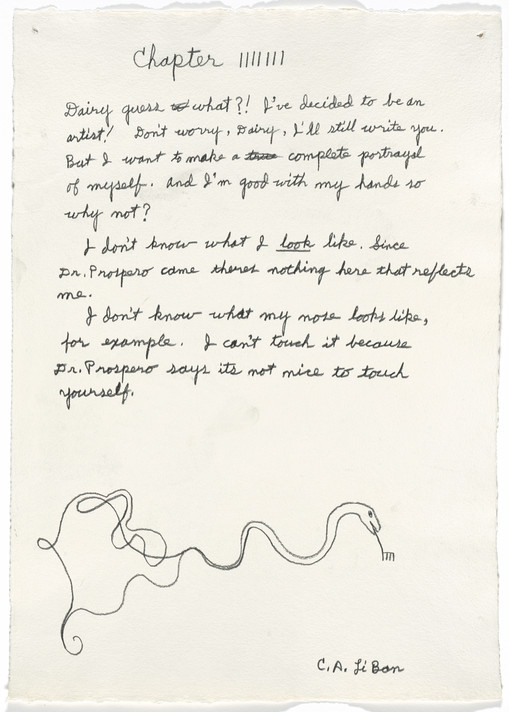 Chapter IIIIIII
Dairy guess to what?! I've decided to be an
artist! Don't worry, Dairy, I'll still write you.
But I want to make a true complete portrayal
of myself. And I'm good with my hands so
why not?
I don't know what I look like. Since
Dr. Prospero came theres nothing here that reflects
me.
I don't know what my nose looks like,
for example. I can't touch it because
Dr. Prospero says its not nice to touch
yourself.
C.A. LiBan